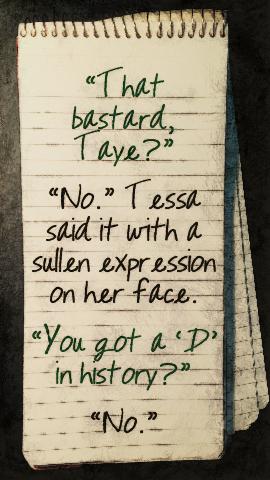 “That
bastard,
Taye?”
“No.” Tessa
said it with a
sullen expression
on her face.
“You got a ‘D’
in history?”
“No.”